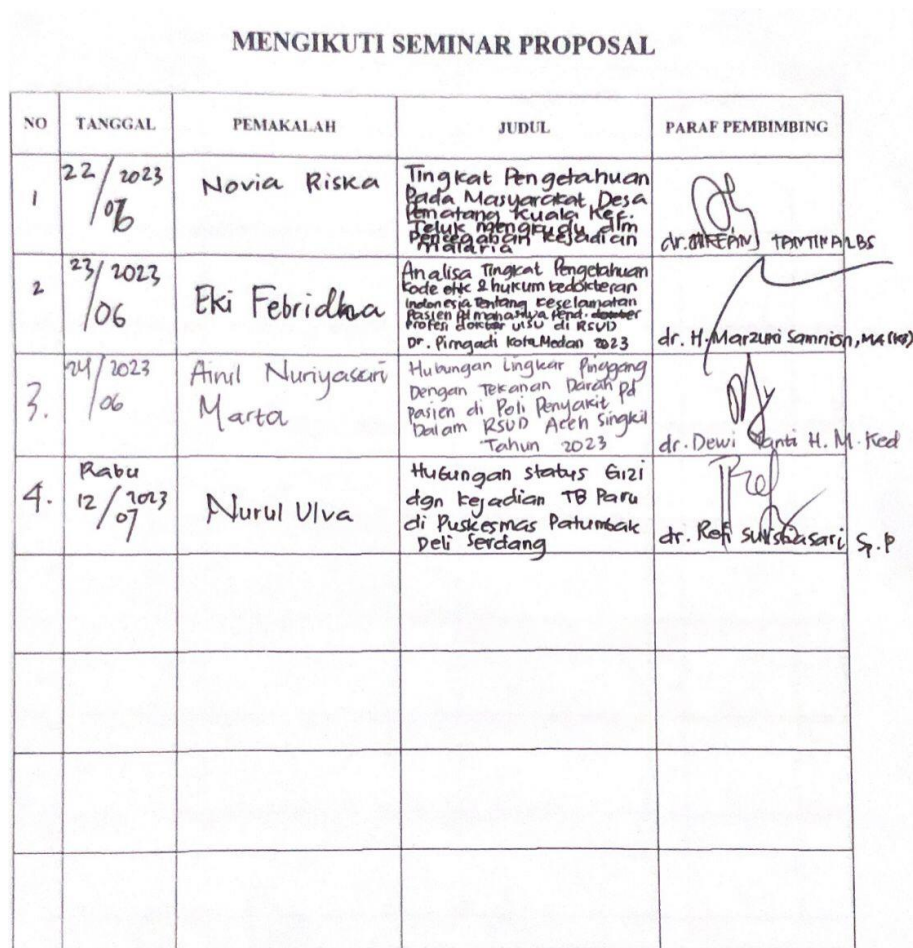 MENGIKUTI SEMINAR PROPOSAL
NO TANGGAL PEMAKALAH JUDUL PARAF PEMBIMBING
1
22/2023
/06
Novia Riska
Tingkat Pengetahuan
Pada Masyarakat Desa
Pematang Kuala Kec.
Teluk mengkudu dlm
Pencegahan Kejadian
malaria
dr.
2
23/2023
/06
Eki Febridha
Analisa Tingkat Pengetahuan
kode etik & hukum kedokteran
Indonesia Tentang keselamatan
Pasien Pd mahasiswa Pend.
Profesi dokter UISU di RSUD
Dr. Pirngadi Kota Medan 2023
dr. H. Marzuki Samnion, MA (Ks)
3.
24/2023
/06
Ainil Nuriyasari
Marta
Hubungan Lingkar Pinggang
Dengan Tekanan Darah pd
pasien di Poli Penyakit
Dalam RSUD Aceh Singkil
Tahun 2023
dr. Dewi Yanti H. M. Ked
4.
Rabu
12/2023
/07
Nurul Ulva
Hubungan status Gizi
dgn kejadian TB Paru
di Puskesmas Patumbak
Deli Serdang
dr. Refi Sulistiasari Sp.P